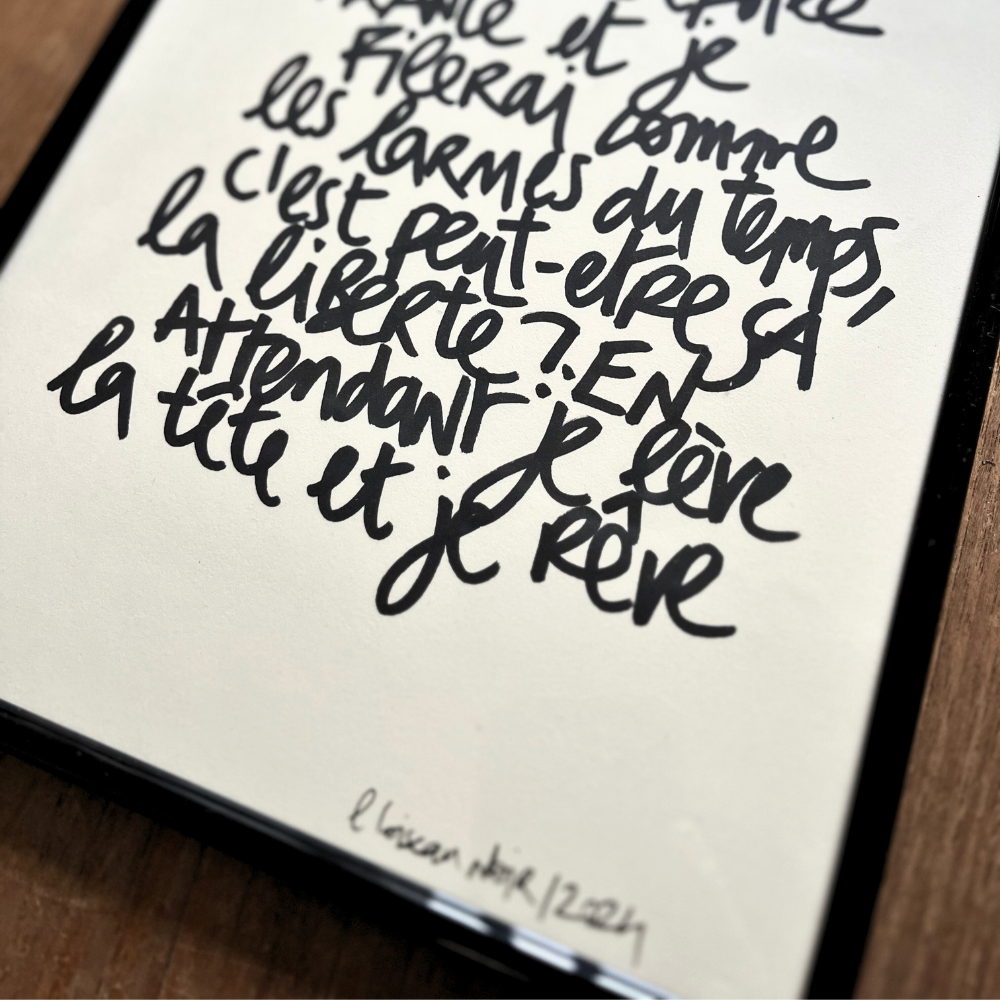 et je
FileRai comme
les laRmes du temps,
c'est peut-etRe çA
la liBeRte ? EN
AttendaNt je lève
la tête et je Rêve
l'oiseau NoiR /2024